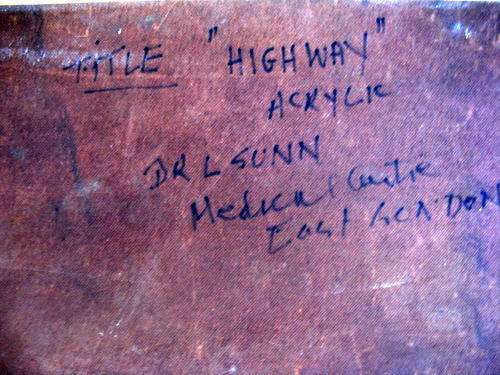 TITLE "HIGHWAY"
ACRYLIC
DR L SUNN
Medical Centre
East LONDON